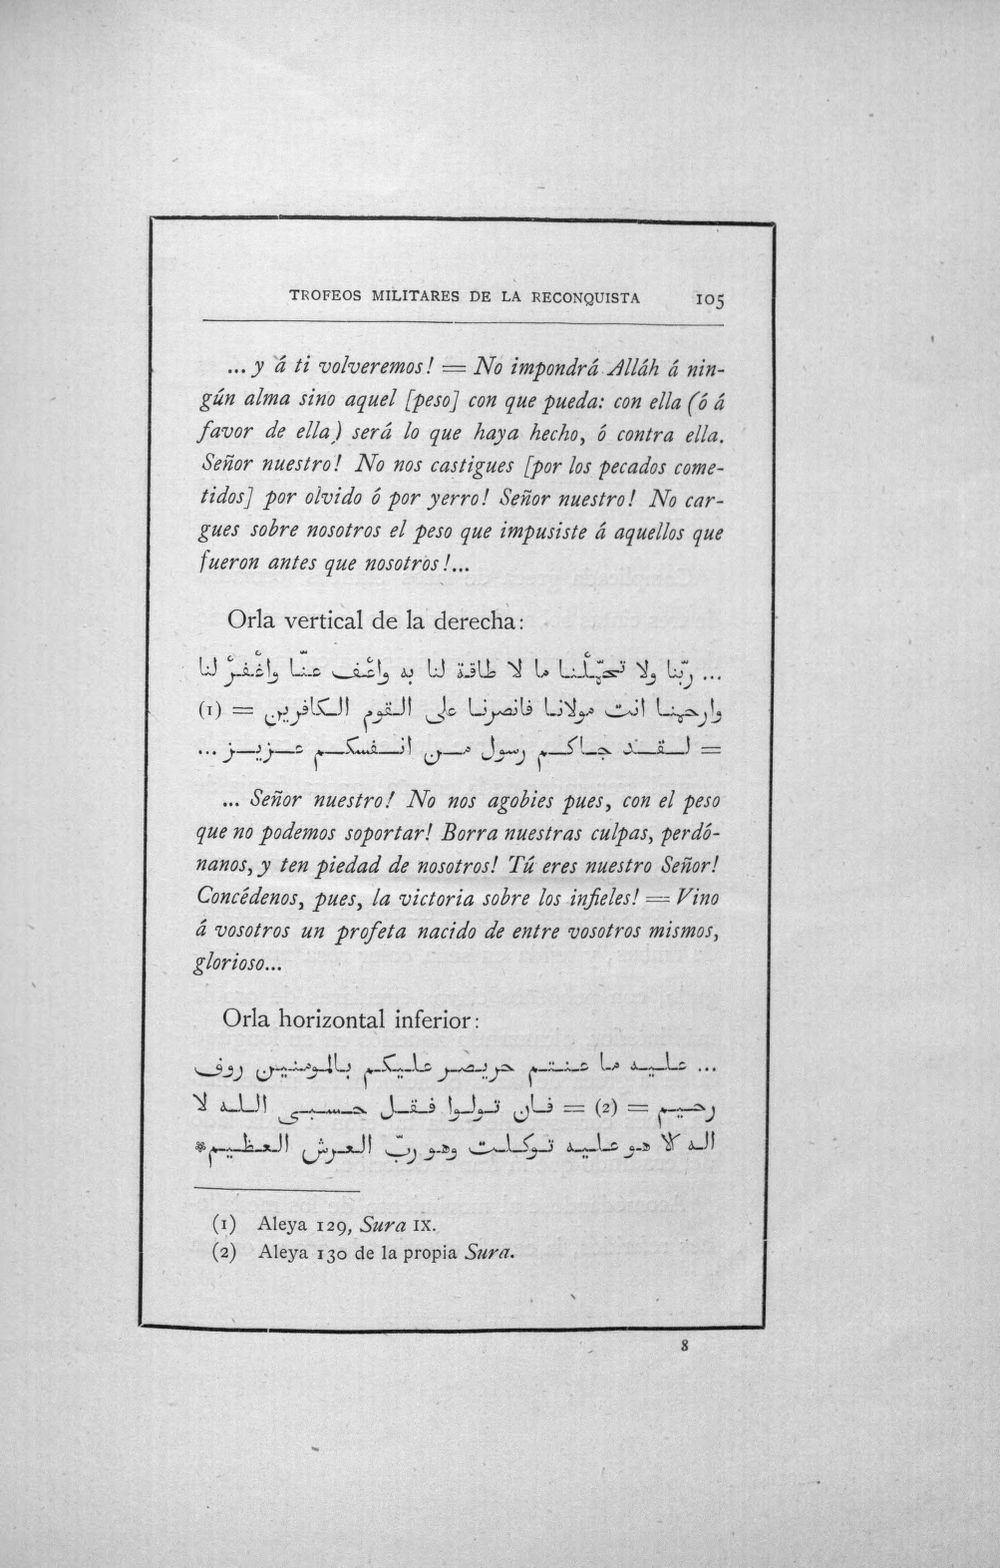 TROFEOS MILITARES DE LA RECONQUISTA 105
...y á ti volveremos! = No impondrá Alláh á nin-
gún alma sino aquel [peso] con que pueda: con ella (ó á
favor de ella) será lo que haya hecho, ó contra ella.
Señor nuestro! No nos castigues [por los pecados come-
tidos] por olvido ó por yerro! Señor nuestro! No car-
gues sobre nosotros el peso que impusiste á aquellos que
fueron antes que nosotros!...
Orla vertical de la derecha:
... ربّنا ولا تحمّلْنا ما لا طاقة لنا به واعْف عنّا واغْفرْ لنا
وارحمنا انت مولانا فانصرنا على القوم الكافرين = (1)
= لقد جاكم رسول من انفسكم عزيز ...
... Señor nuestro! No nos agobies pues, con el peso
que no podemos soportar! Borra nuestras culpas, perdó-
nanos, y ten piedad de nosotros! Tú eres nuestro Señor!
Concédenos, pues, la victoria sobre los infieles! = Vino
á vosotros un profeta nacido de entre vosotros mismos,
glorioso...
Orla horizontal inferior:
... عليه ما عنتم حريصر عليكم بالمومنين روف
رحيم = (2) = فان تولوا فقل حسبى الله لا
اله الا هو عليه توكلت وهو ربّ العرش العظيم*
(1) Aleya 129, Sura IX.
(2) Aleya 130 de la propia Sura.
8